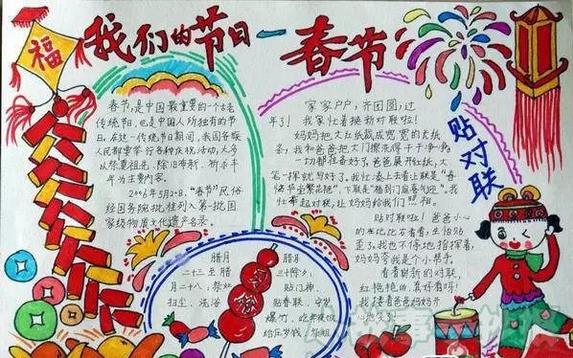 福
我们的节日—春节
春节,是中国最重要的一个传
统节日,也是中国人所独有的节
日。在这一传统节日期间,我国各族
人民都要举行各种庆祝活动,大多
以祭
除旧布新、祈求丰
年为主要内容。
2006年5月20,“春节”民俗
经国务院批准列入第一批国
家级物质文化遗产名录。
家家户户,齐团圆,过
年了!我家忙着换新对联啦!
妈妈把大红纸裁成宽宽的大纸
条,我和爸爸把大门擦洗得干干净净,
一切都准备好了,爸爸展开红纸,大
笔一挥就写好了。我忙凑上去看上联是“春
下联是“福到门庭喜气迎”。我
忙举起对联,让妈妈给我们照相。
贴对联
贴对联啦!爸爸小心
地
看看,生怕贴
歪了。我也不停地指挥着,
妈妈夸我是个小帮手。
看着崭新的对联,
红艳艳的,真好看呀!
我
着爸爸妈妈
腊月
二十三至腊
月二十八:祭灶
扫尘、洗浴
腊月
三十除夕:
贴门神、
贴春联、守岁
爆竹、吃年夜饭
给压岁钱、祭祖